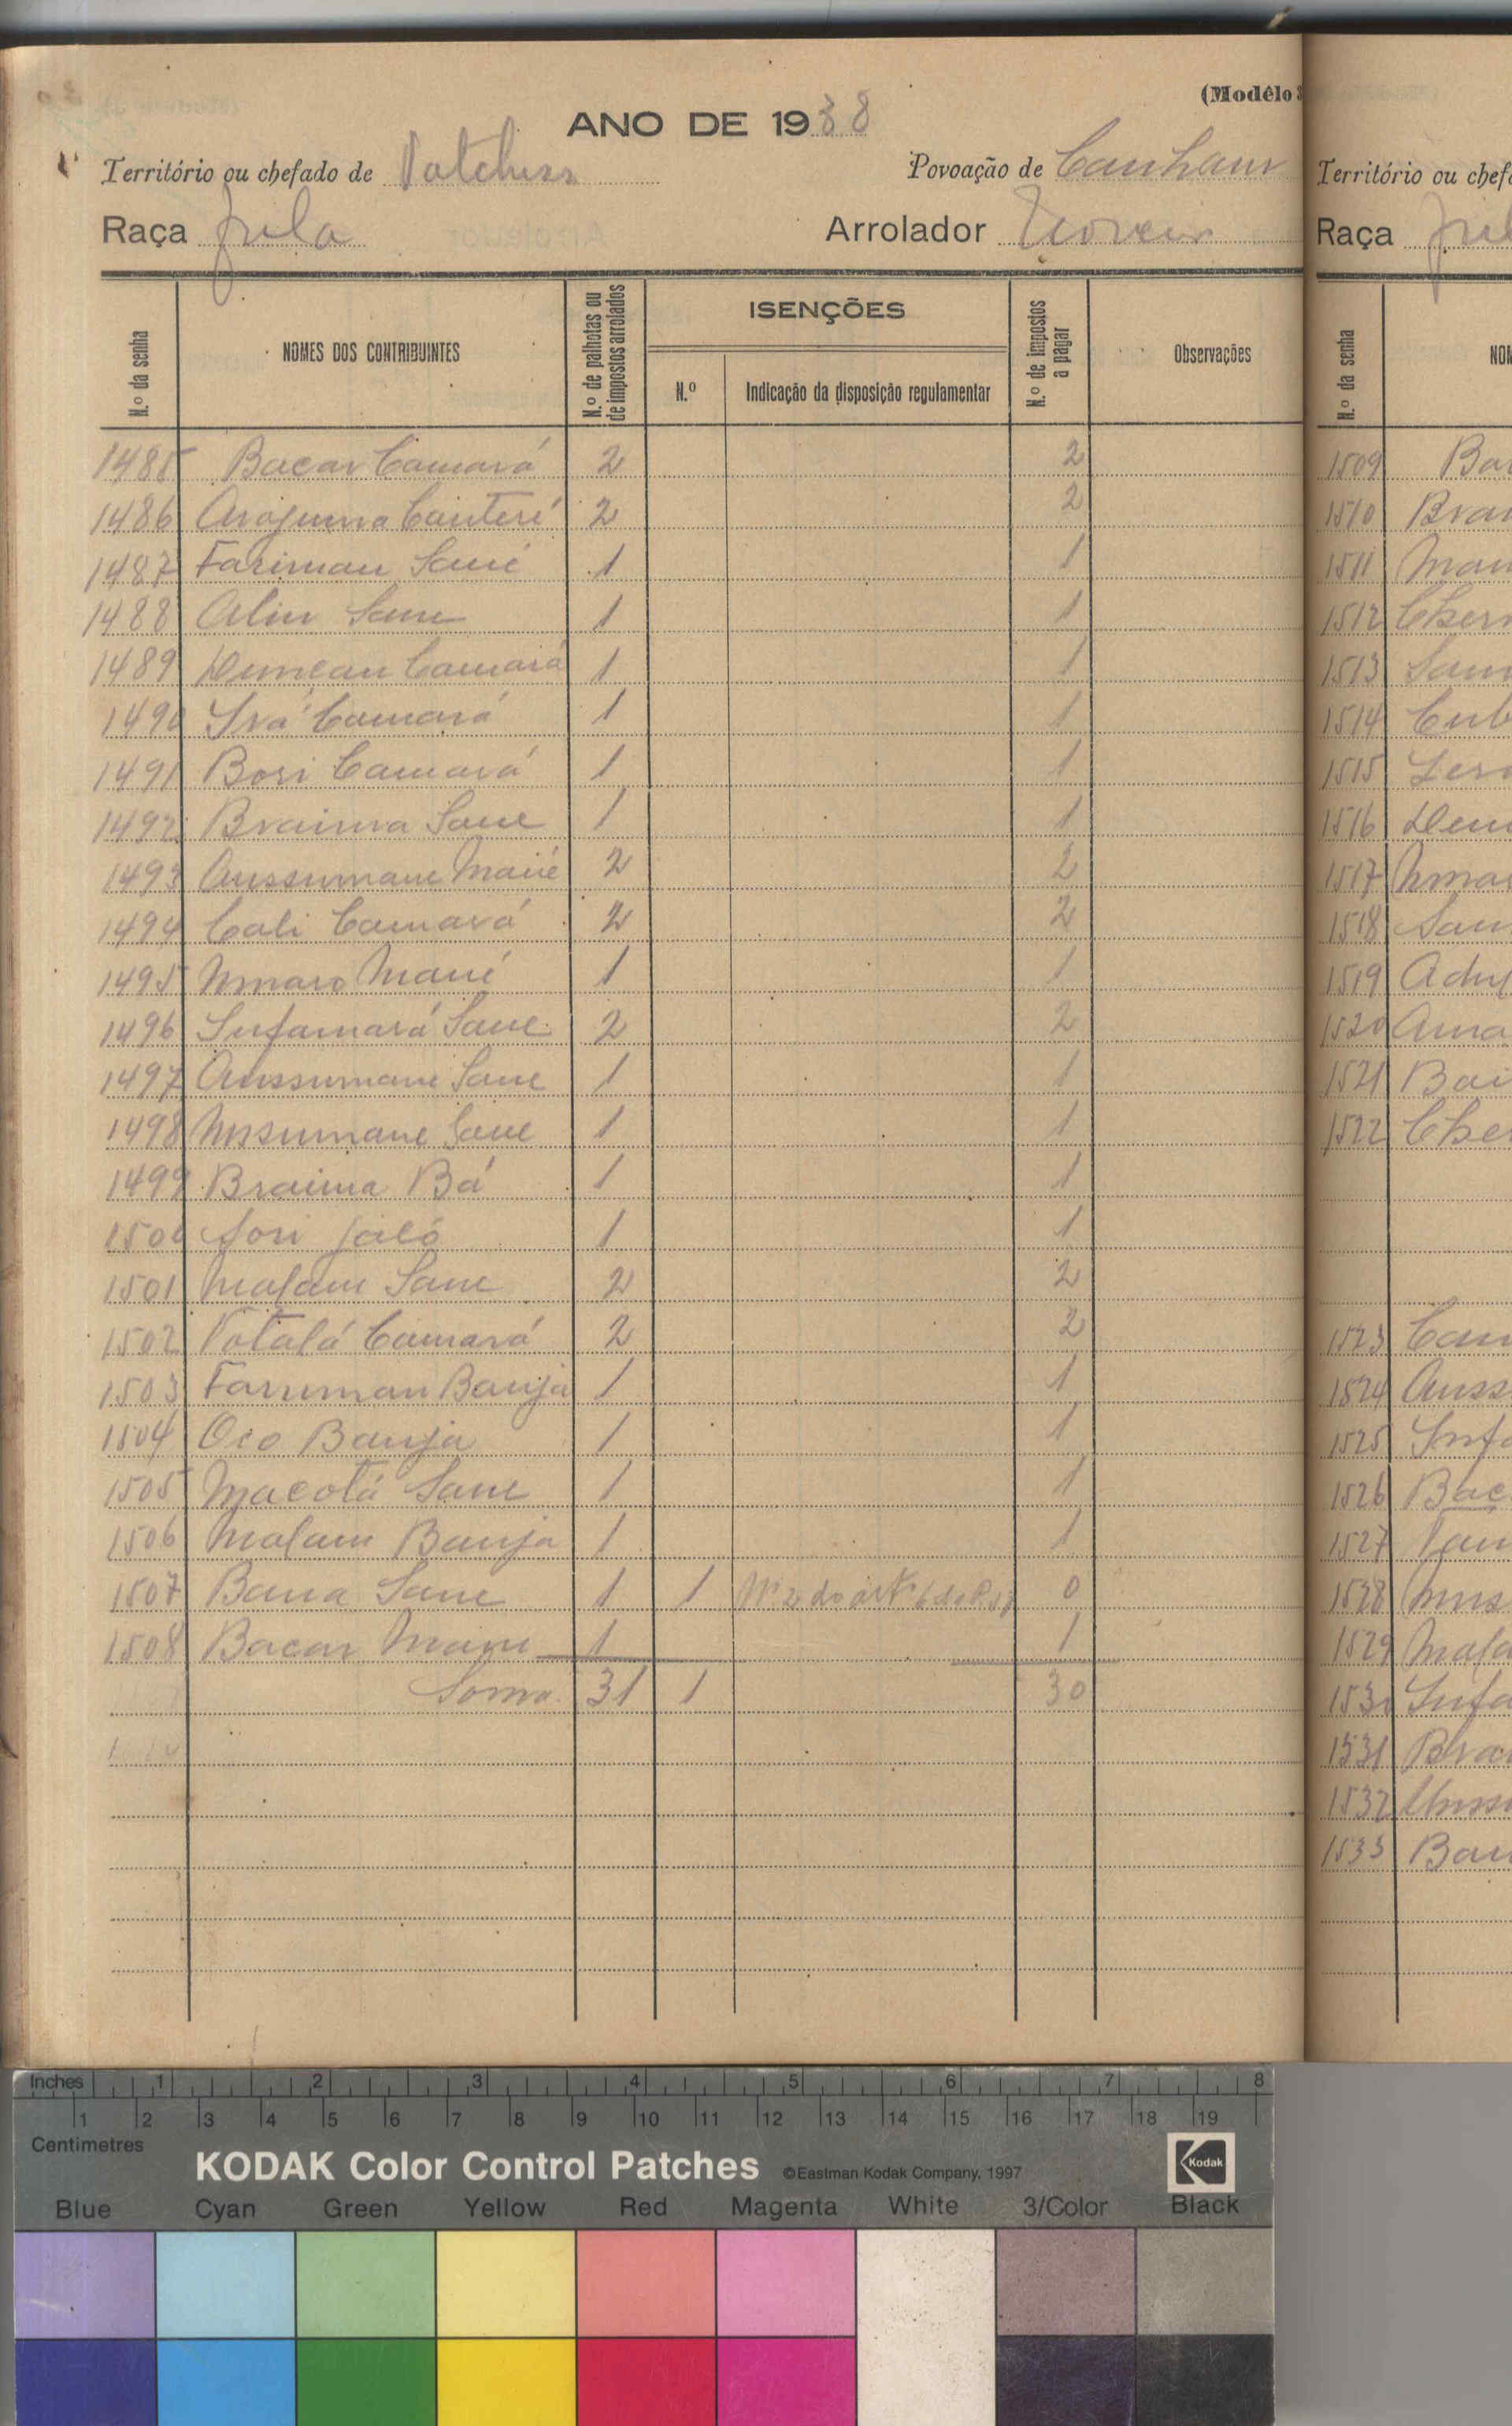 (Modêlo 3
ANO DE 1938
Território ou chefado de Patchiss Povoação de Canham
Raça fula Arrolador
N.º da senha NOMES DOS CONTRIBUINTES N.º de palhotas ou de impostos arrolados ISENÇÕES N.º Indicação da disposição regulamentar N.º de impostos a pagar Observações
1485 Bacar Camará 2 2
1486 2 2
1487 Fariman Sané 1 1
1488 Aliu Sane 1 1
1489 Camará 1 1
1490 Camará 1 1
1491 Bori Camará 1 1
1492 Braima Sane 1 1
1493 Aussumane Mané 2 2
1494 Cali Camará 2 2
1495 Umaro Mané 1 1
1496 Infamará Sane 2 2
1497 Aussumane Sane 1 1
1498 Sane 1 1
1499 Braima Bá 1 1
1500 Sori Jaló 1 1
1501 Malam Sane 2 2
1502 Camará 2 2
1503 Banja 1 1
1504 Banja 1 1
1505 Macotá Sane 1 1
1506 Malam Banja 1 1
1507 Bana Sane 1 1 Nº 2 do artº 6 do 0
1508 Bacar Mane 1 1
Soma 31 1 30
Território ou chefa
Raça
N.º da senha NOM
1509 Ba
1510 Bra
1511 Man
1512 Cher
1513 Sam
1514 Cub
1515
1516 Dem
1517 Umar
1518 San
1519
1520 Ama
1521 Bai
1522 Cher
1523 Cam
1524 Auss
1525 Infa
1526 Bac
1527
1528
1529 Mala
1530 Infa
1531 Bra
1532
1533 Ba
Inches 1 2 3 4 5 6 7 8
1 2 3 4 5 6 7 8 9 10 11 12 13 14 15 16 17 18 19
Centimetres
KODAK Color Control Patches ©Eastman Kodak Company, 1997 Kodak
Blue Cyan Green Yellow Red Magenta White 3/Color Black